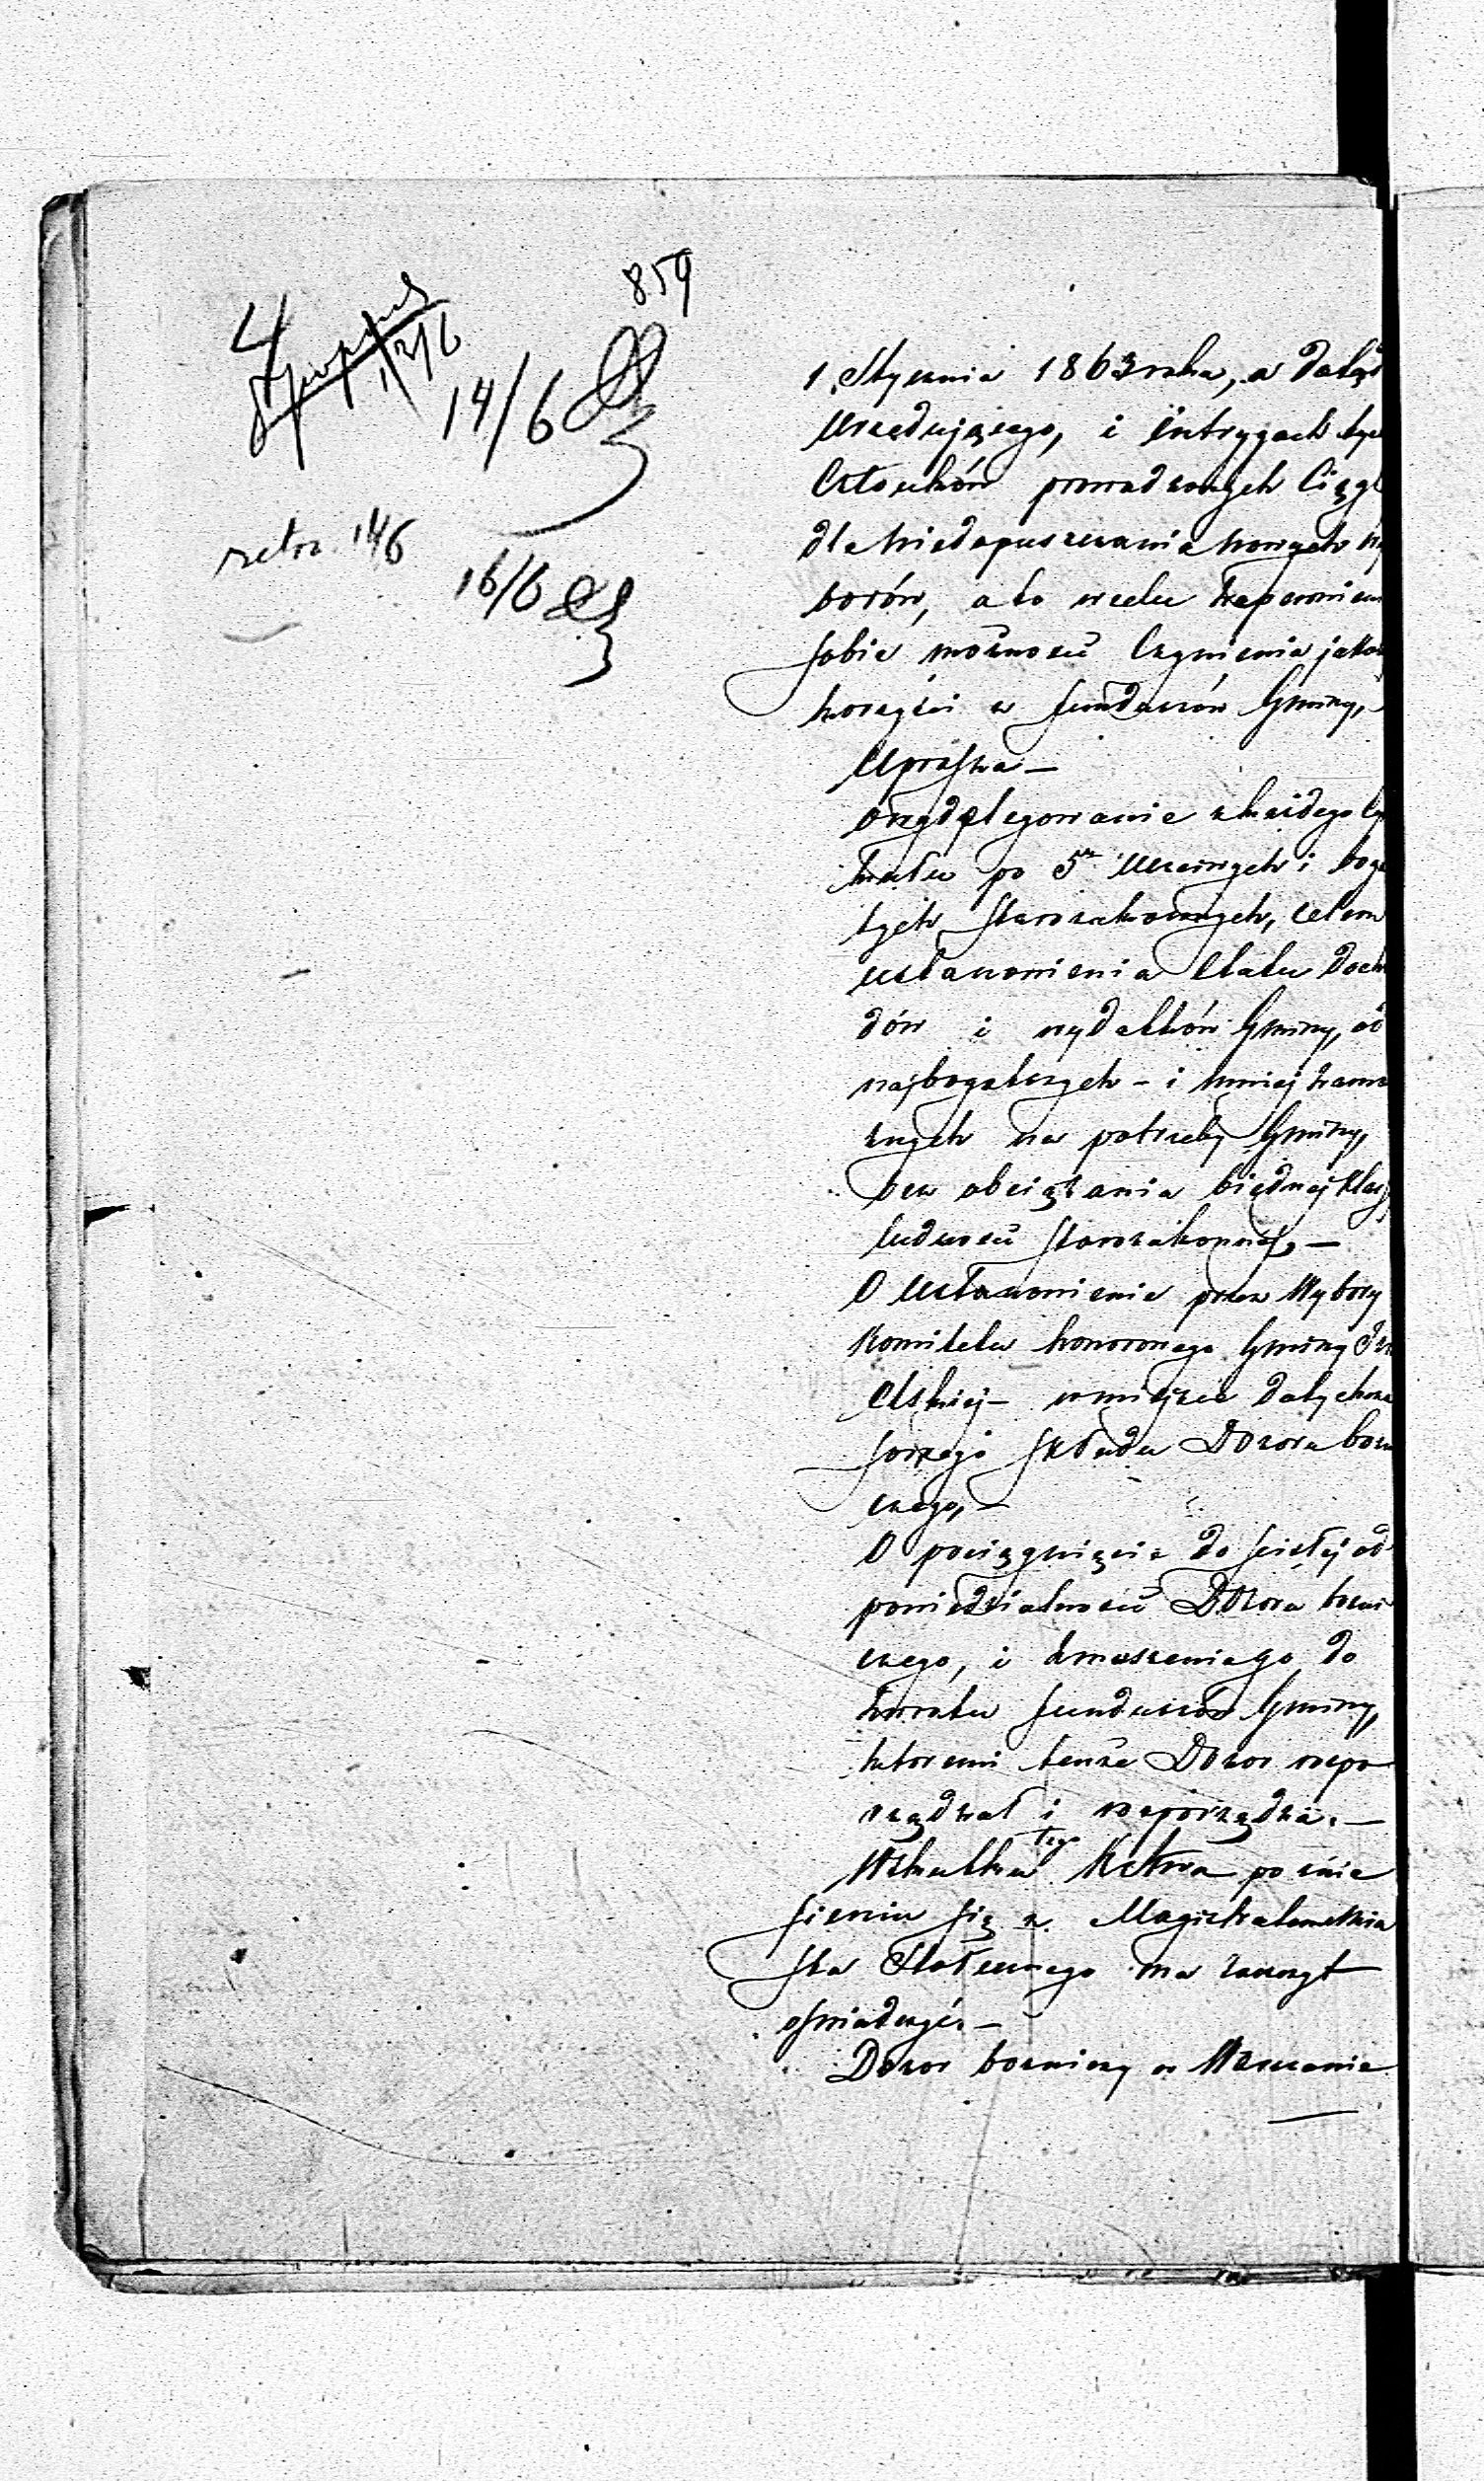 859
4
12/6
14/6
retr. 14/6
16/6
1 Stycznia 1863 roku, a daléj
Urzędującego, i intrygach tyc
Członków prowadzonych Ciągl
dla niedopuszczania nowych wy
borów, a to w celu zapewnieni
sobie możności Czynienia jako
korzyści z funduszów Gminy,
Uprasza —
wydelegowanie z każdego Cy
kułu po 5ciu Uczciwych i boga
tych Starozakonnych, celem
ustanowienia Etatu docho
dów i wydatków Gminy, od
najbogatszych – i mniej zamo
żnych na potrzeby Gminy,
bez obciążania biédnej Klasy
ludności Starozakonnéj, —
O Ustanowienie przez Wybory
Komitetu honorowego Gminy Izra
elskiej – w miejsce dotychcza
sowego składu Dozoru bożni
czego, —
O pociągnięcie do ścisłéj od
powiedzialności Dozoru bożni
czego, i zmuszenia go do
zwrotu funduszów Gminy,
któremi tenże Dozor rozpo
rządzał i rozporządza. —
Wskutku tego po znie
sieniu się z Magistratem Mia
sta Stołecznego ma zaszczyt
oświadczyć. —
Dozor bożniczy w Warszawie